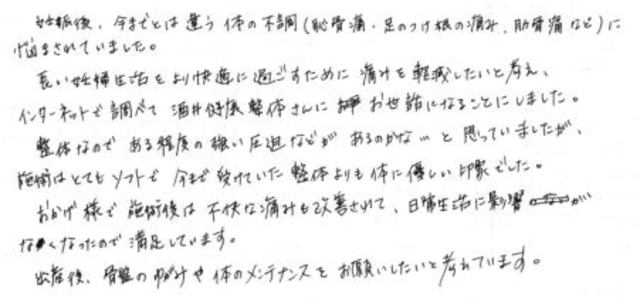 妊娠後、今までとは違う体の不調(恥骨痛・足のつけ根の痛み、肋骨痛など)に
悩まされていました。
長い妊婦生活をより快適に過ごすために痛みを軽減したいと考え、
インターネットで調べて酒井健康整体さんにお世話になることにしました。
整体なのである程度の強い圧迫などがあるのかな…と思っていましたが、
施術はとてもソフトで今まで受けていた整体よりも体に優しい印象でした。
おかげ様で施術後は不快な痛みも改善されて、日常生活に影響が
なくなったので満足しています。
出産後、骨盤のゆがみや体のメンテナンスをお願いしたいと考えています。